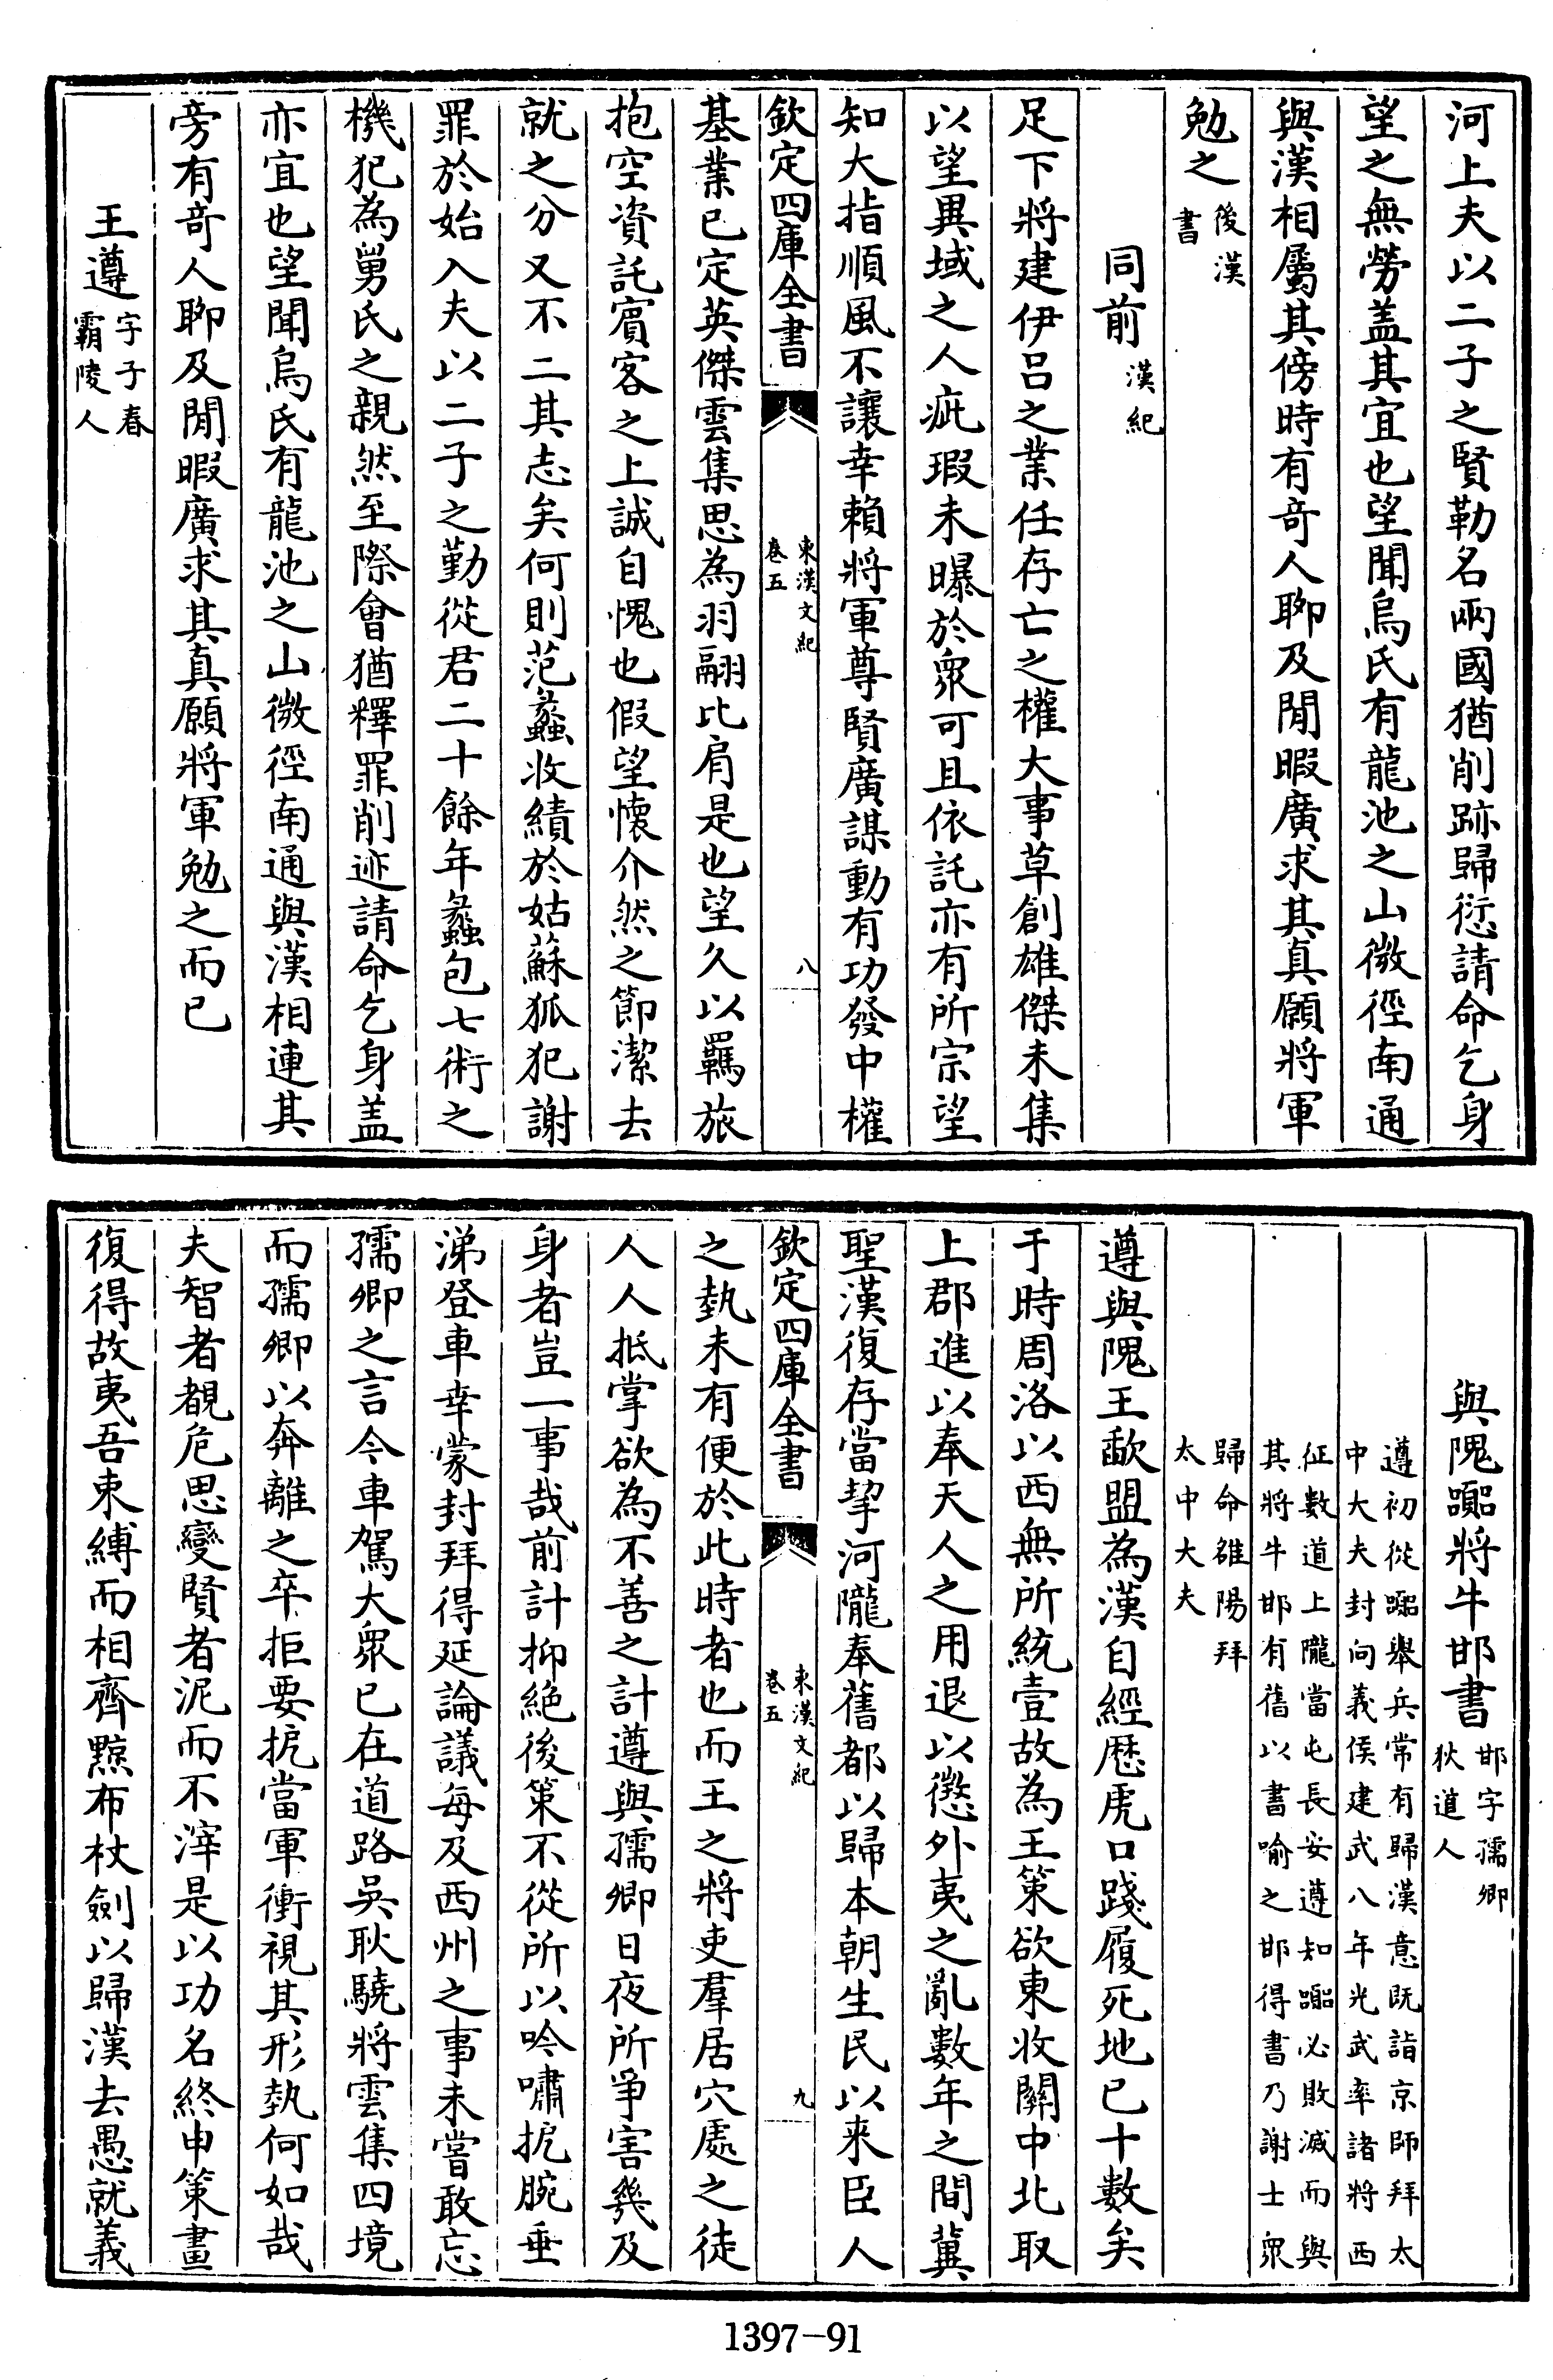 河上夫以二子之賢勒名兩國猶削跡歸愆請命乞身
望之無勞盖其宜也望聞烏氏有龍池之山微徑南通
與漢相屬其傍時有竒人聊及閒暇廣求其真願將軍
勉之後漢
書
同前漢紀
足下將建伊吕之業任存亡之權大事草創雄傑未集
以望異域之人疵瑕未曝於衆可且依託亦有所宗望
知大指順風不讓幸賴將軍尊賢廣謀動有功發中權
欽定四庫全書
東漢文紀
卷五
八
基業已定英傑雲集思為羽翮比肩是也望久以羈旅
抱空資託賓客之上誠自愧也假望懷介然之節潔去
就之分又不二其志矣何則范蠡收績於姑蘇狐犯謝
罪於始入夫以二子之勤從君二十餘年蠡包七術之
機犯為舅氏之親然至際會猶釋罪削迹請命乞身盖
亦宜也望聞烏氏有龍池之山微徑南通與漢相連其
旁有竒人聊及閒暇廣求其真願將軍勉之而已
王遵字子春
霸陵人
與隗囂將牛邯書邯字孺卿
狄道人
遵初從囂舉兵常有歸漢意既詣京師拜太
中大夫封向義侯建武八年光武率諸將西
征數道上隴當屯長安遵知囂必敗滅而與
其將牛邯有舊以書喻之邯得書乃謝士衆
歸命雒陽拜
太中大夫
遵與隗王歃盟為漢自經歴虎口踐履死地已十數矣
于時周洛以西無所統壹故為王策欲東收關中北取
上郡進以奉天人之用退以懲外夷之亂數年之間冀
聖漢復存當挈河隴奉舊都以歸本朝生民以来臣人
欽定四庫全書
東漢文紀
卷五
九
之埶未有便於此時者也而王之將吏羣居穴處之徒
人人抵掌欲為不善之計遵與孺卿日夜所爭害㡬及
身者豈一事哉前計抑絶後策不從所以吟嘯扼腕垂
涕登車幸蒙封拜得延論議每及西州之事未嘗敢忘
孺卿之言今車駕大衆已在道路吳耿驍將雲集四境
而孺卿以奔離之卒拒要扼當軍衝視其形埶何如哉
夫智者覩危思變賢者泥而不滓是以功名終申策畫
復得故夷吾束縛而相齊黥布杖劍以歸漢去愚就義
1397-91